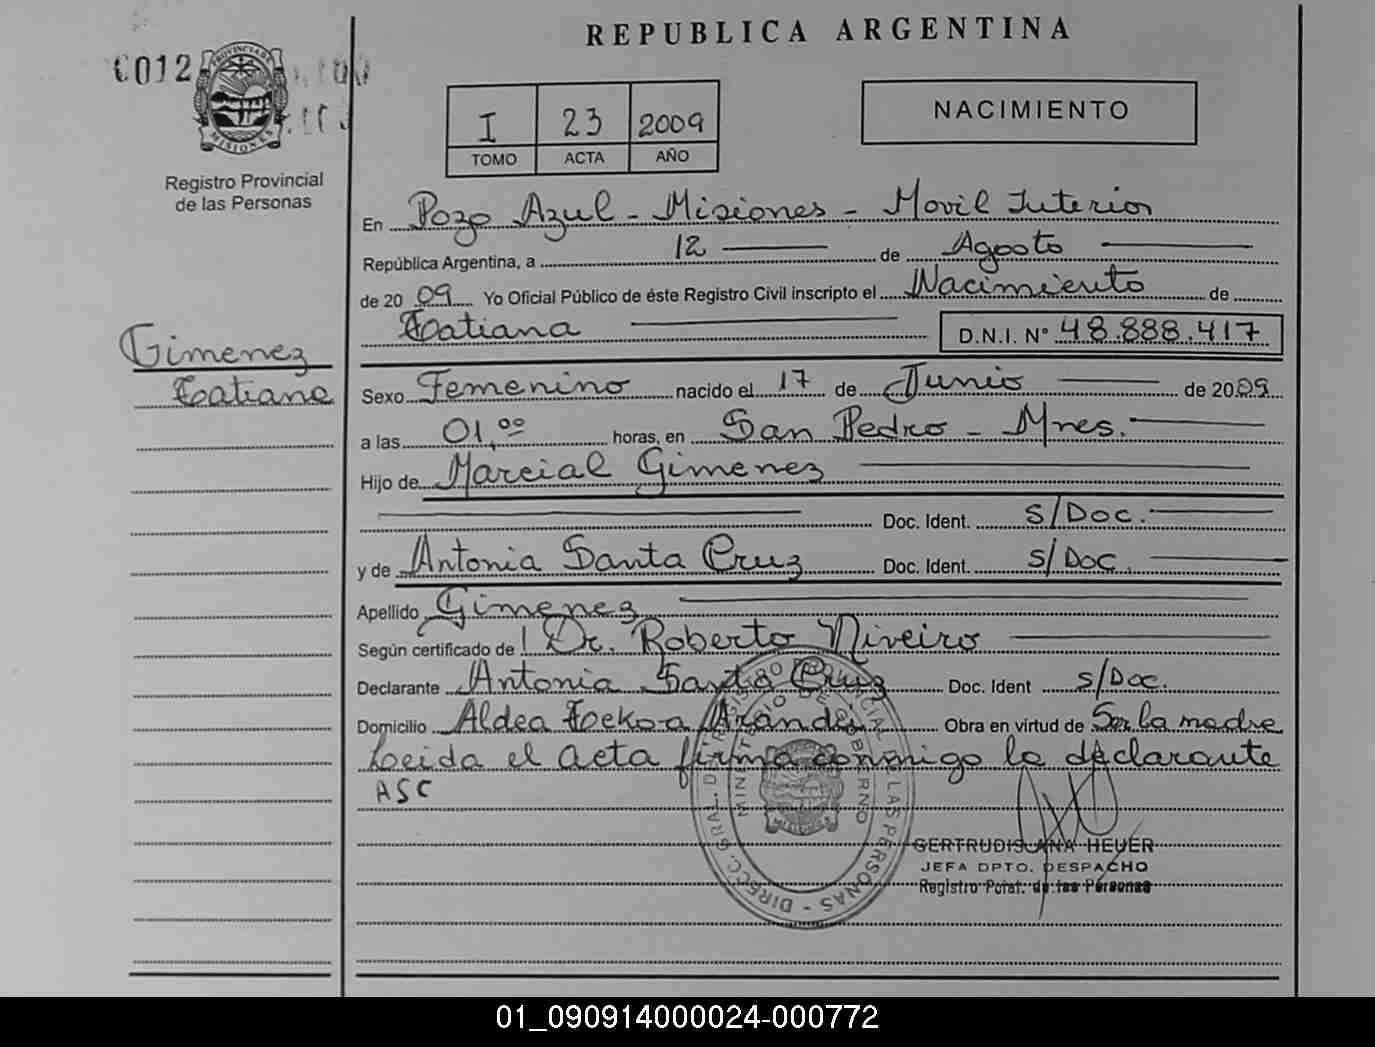 REPUBLICA ARGENTINA
C012
PROVINCIA DE
MISIONES
Registro Provincial
de las Personas
I 23 2009
TOMO ACTA AÑO
NACIMIENTO
En Pozo Azul - Misiones - Movil Interior
República Argentina, a 12 de Agosto
de 20 09 Yo Oficial Público de éste Registro Civil inscripto el Nacimiento de
Tatiana D.N.I. N° 48.888.417
Gimenez
Tatiana
Sexo Femenino nacido el 17 de Junio de 2009
a las 01,00 horas, en San Pedro - Mnes.
Hijo de Marcial Gimenez
Doc. Ident. S/Doc.
y de Antonia Santa Cruz Doc. Ident. S/Doc.
Apellido Gimenez
Según certificado de Dr. Roberto Niveiro
Declarante Antonia Santa Cruz Doc. Ident S/Doc.
Domicilio Aldea Tekoa Arandu Obra en virtud de Ser la madre
Leida el acta firma conmigo la declarante
ASC
DIRECC. GRAL. DEL REGISTRO PROVINCIAL DE LAS PERSONAS -
MINISTERIO DE GOBIERNO
GERTRUDIS ANA HEUER
JEFA DPTO. DESPACHO
Registro Pcial. de las Personas
01_090914000024-000772